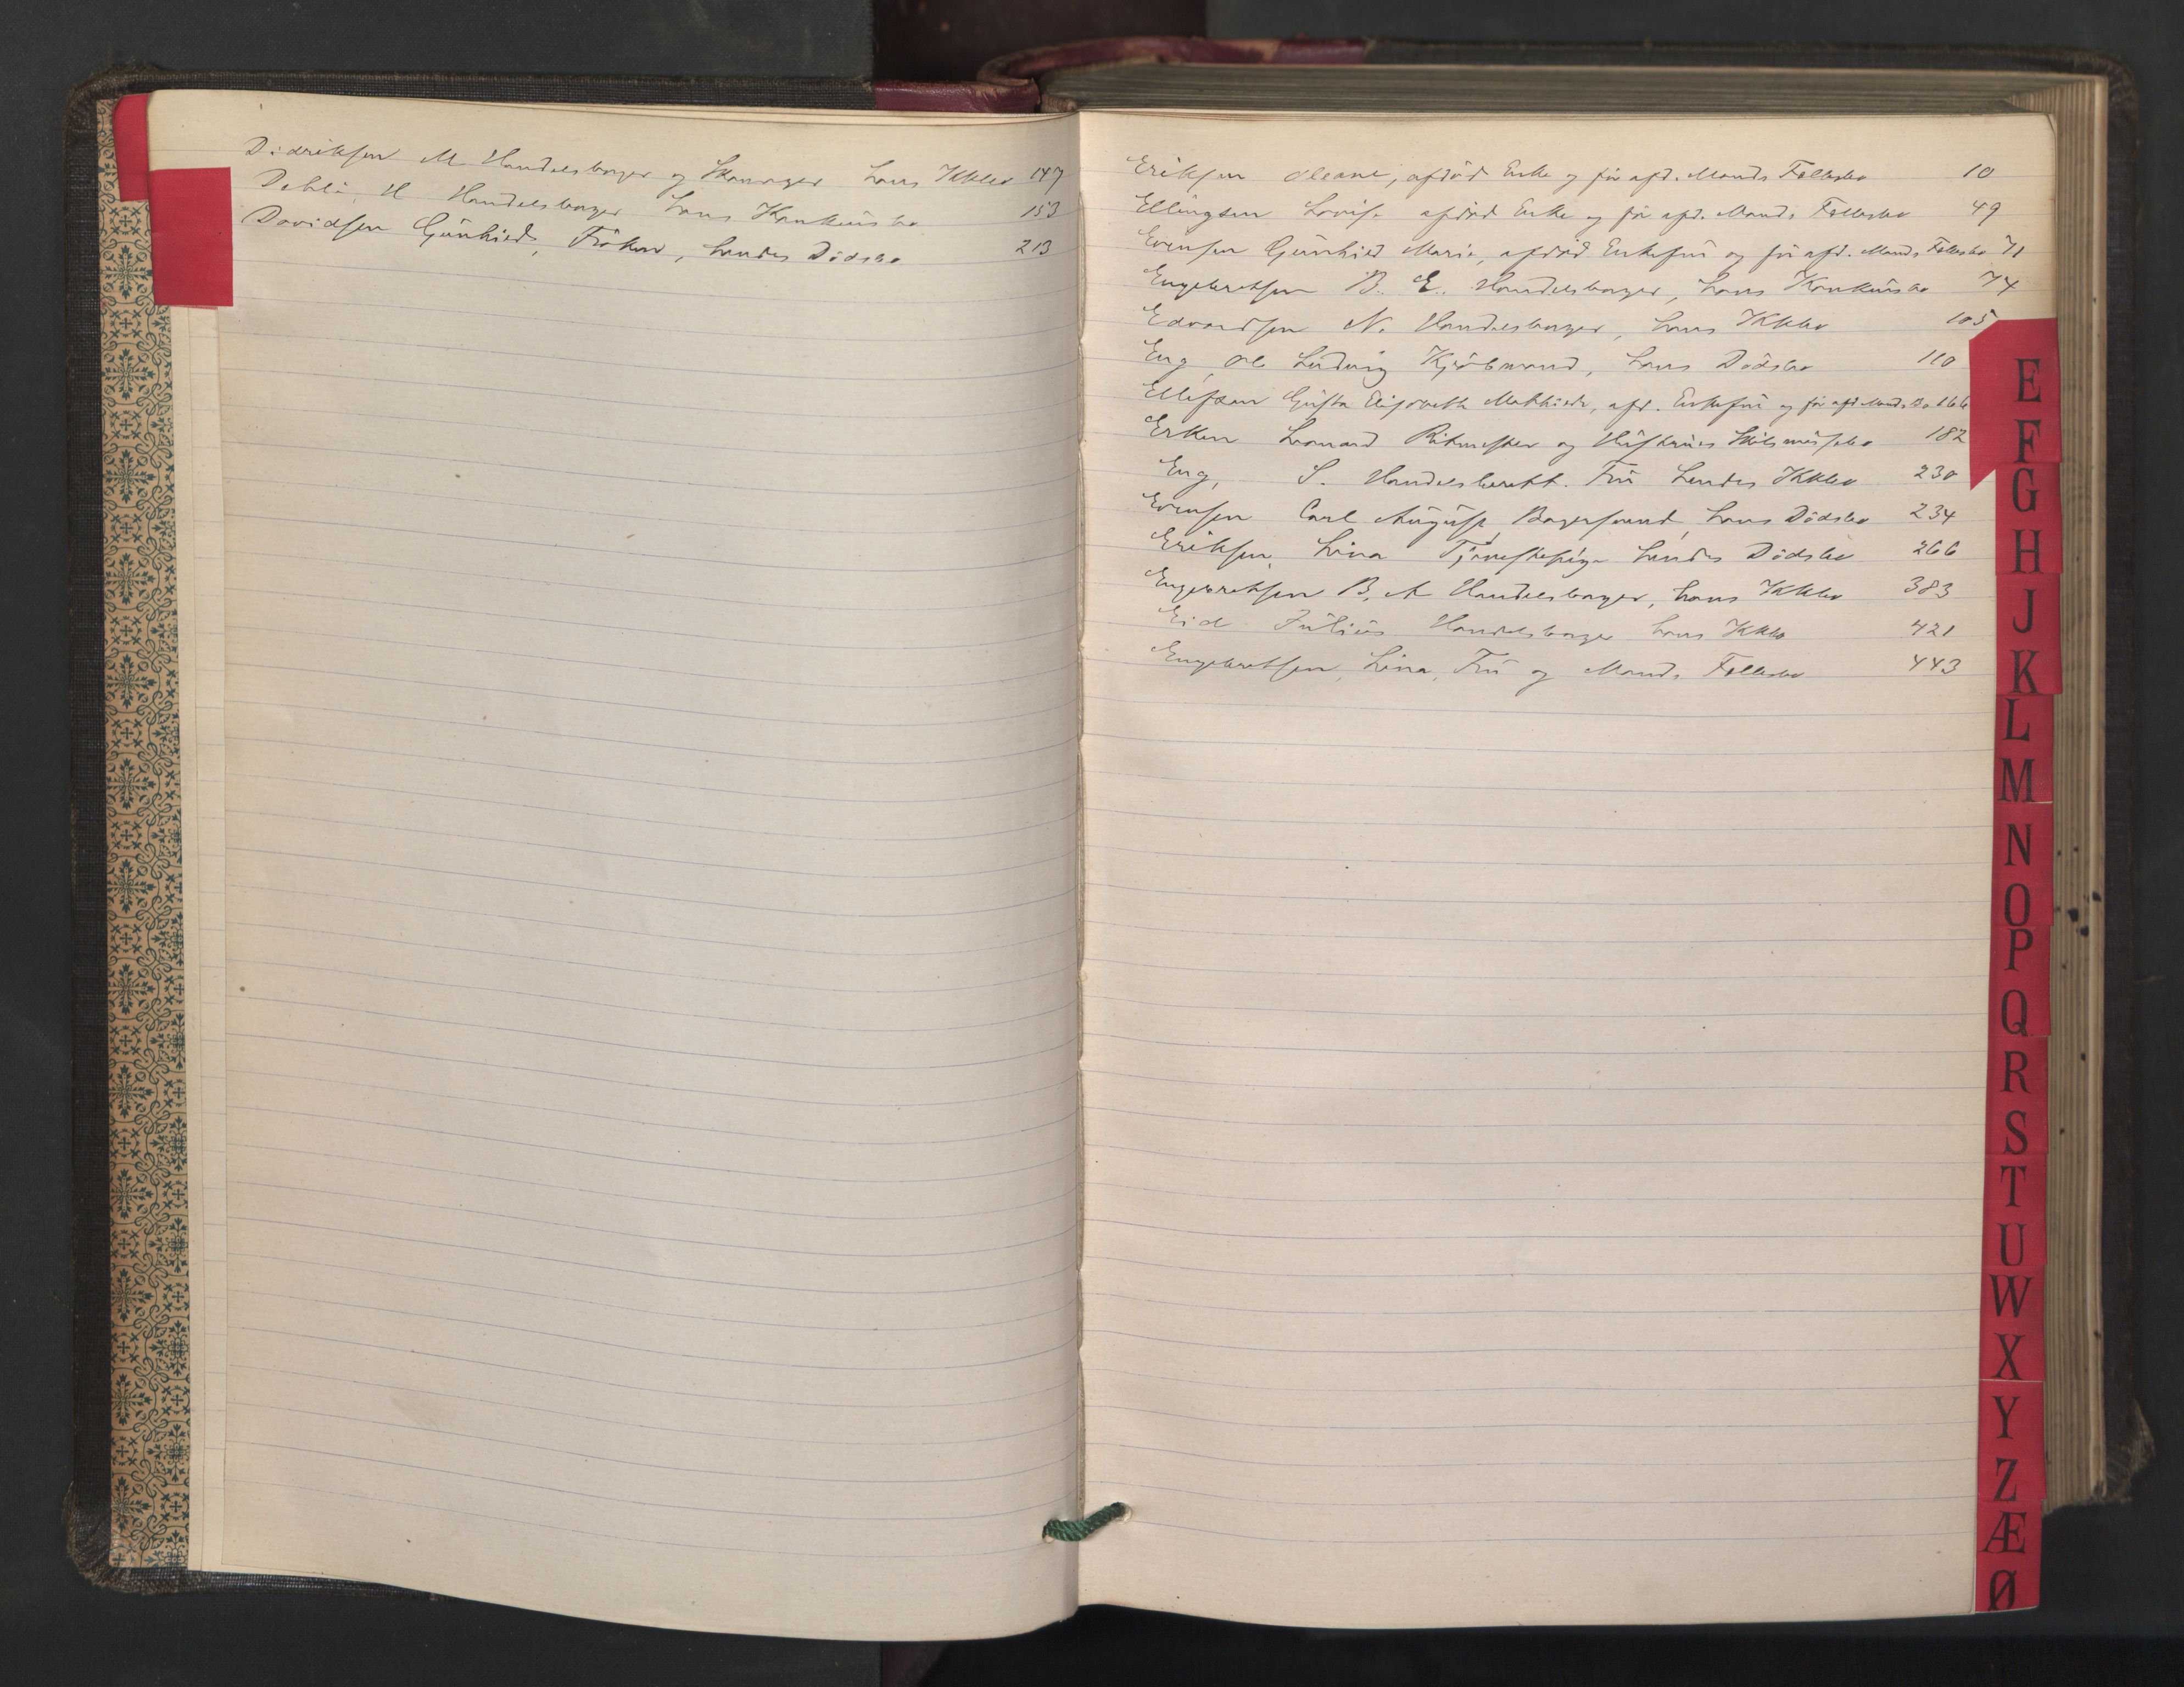 Didriksen M Handelsborger og Skomager hans Kkbo 147
Dehli, H Handelsborger hans Konkursbo 153
Davidsen Gunhild, Frøken, hendes Dødsbo 213
Eriksen Oleane, afdød Enke og før afd. Mands Fællesbo 10
Ellingsen Lovise afdød Enke og før afd. Mands Fællesbo 49
Evensen Gunhild Marie, afdød Enkefru og før afd. Mands Fællesbo 71
Engebretsen B. E. Handelsborger, hans Konkursbo 74
Edvardsen N. Handelsborger, hans Kkbo 105
Eng Ole Ludvig Kjøbmand, hans Dødsbo 110
Ellefsen Elisabeth Mathilde, afd. Enkefru og før afd Mands Bo 166
Erken Leonard Ritmester og Hustrues Skilsmissebo 182
Eng, S. Handelsberett. Fru hendes Kkbo 230
Evensen Carl August, Bagersvend, hans Dødsbo 234
Eriksen, Lina Tjenestepige hendes Dødsbo 266
Engebretsen B. A Handelsborger, hans Kkbo 383
Eid Julius Handelsborger hans Kkbo 421
Engebretsen, Lina, Fru og Mands Fællesbo 443
E
F
G
H
J
K
L
M
N
O
P
Q
R
S
T
U
W
X
Y
Z
Æ
Ø